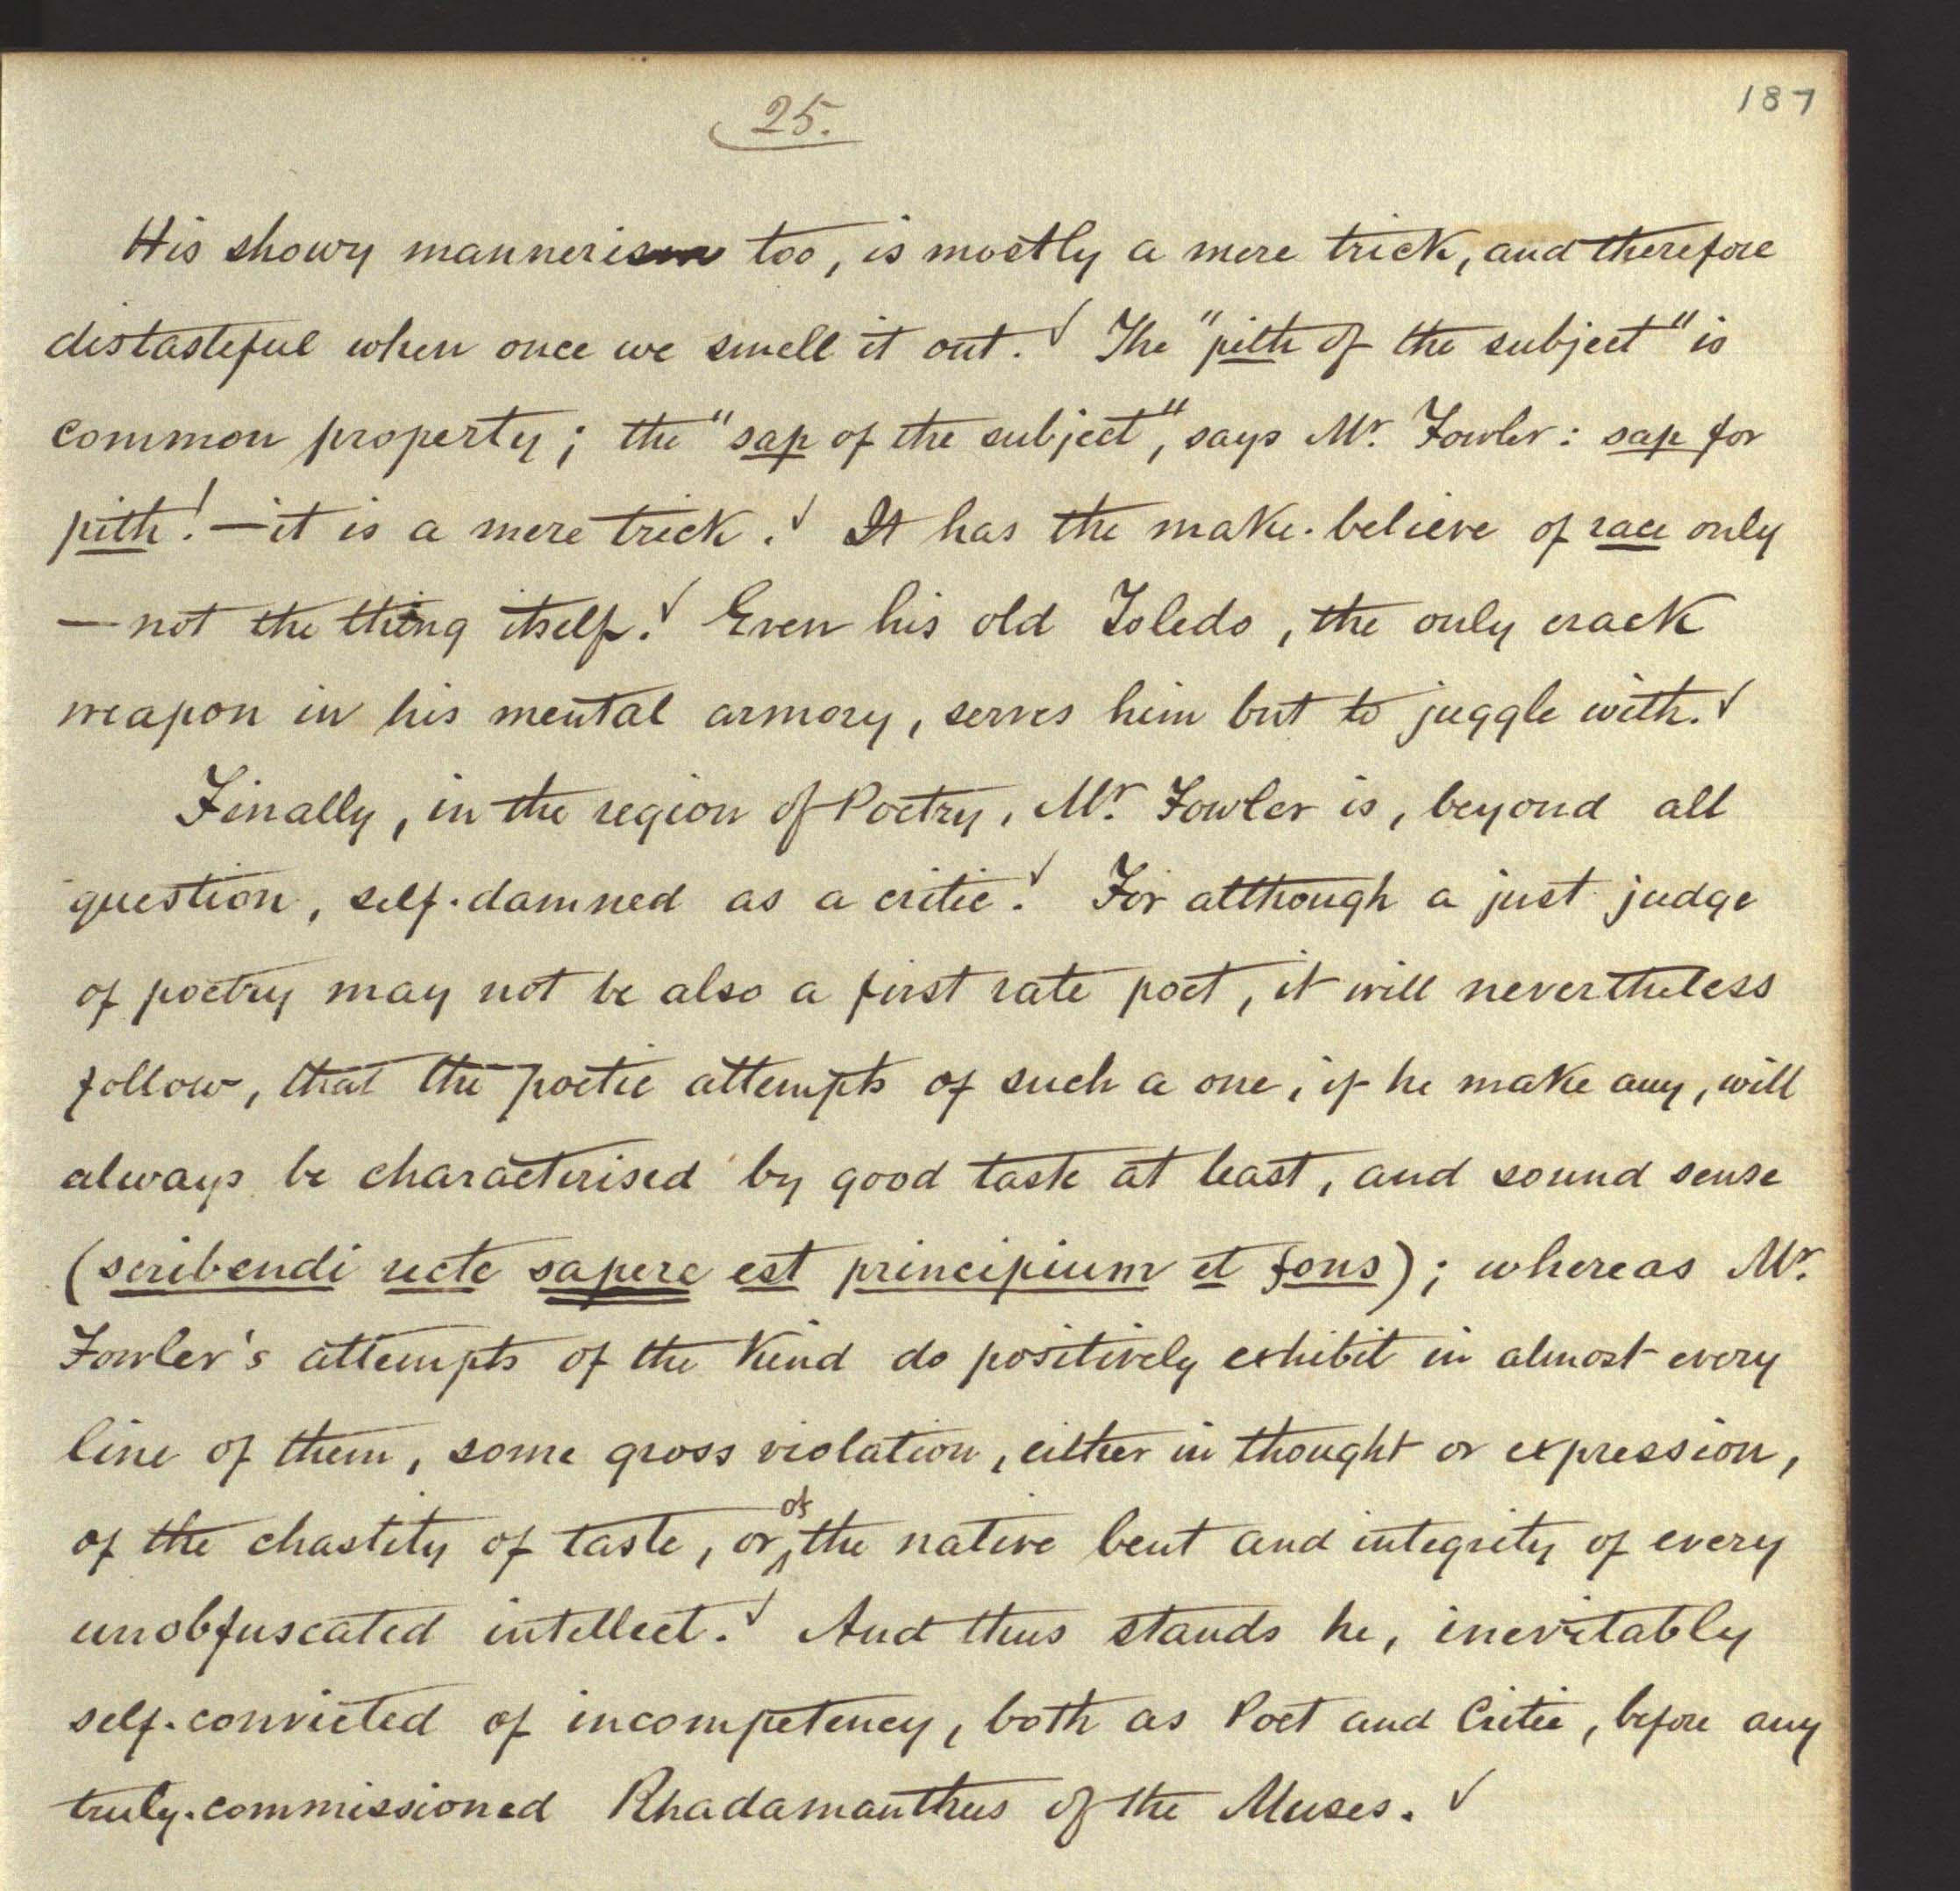 25.
187
His showy mannerism too, is mostly a mere trick, and therefore
distasteful when once we smell it out. ✓ The "pith of the subject" is
common property; the "sap of the subject", says Mr. Fowler: sap for
pith! — it is a mere trick. ✓ It has the make-believe of race only
— not the thing itself. ✓ Even his old Toledo, the only crack
weapon in his mental armory, serves him but to juggle with. ✓
Finally, in the region of Poetry, Mr. Fowler is, beyond all
question, self-damned as a critic. ✓ For although a just judge
of poetry may not be also a first rate poet, it will nevertheless
follow, that the poetic attempts of such a one, if he make any, will
always be characterised by good taste at least, and sound sense
(scribendi recte sapere est principium et fons); whereas Mr.
Fowler's attempts of the kind do positively exhibit in almost every
line of them, some gross violation, either in thought or expression,
of the chastity of taste, or of the native bent and integrity of every
unobfuscated intellect. ✓ And thus stands he, inevitably
self-convicted of incompetency, both as Poet and Critic, before any
truly-commissioned Rhadamanthus of the Muses. ✓